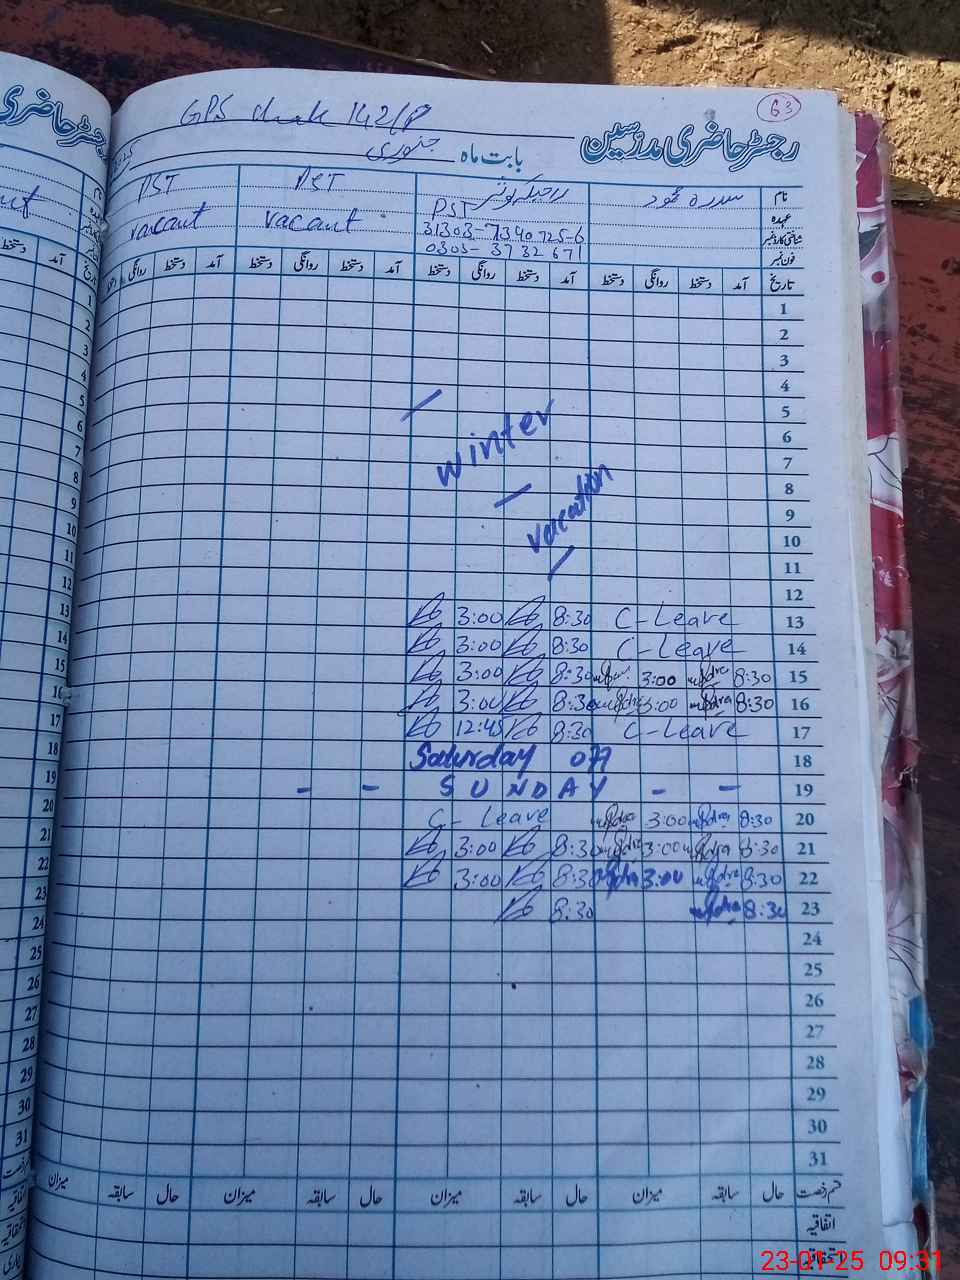 63
GPS chak 142/P
رجسٹر حاضری مدرسین
بابت ماہ جنوری
نام سدرہ محمود PST PST
عہدہ PST vacant vacant
شناختی کارڈ نمبر 31303-7340725-6
فون نمبر 0303-3732671
تاریخ آمد دستخط روانگی دستخط آمد دستخط روانگی دستخط آمد دستخط روانگی دستخط آمد دستخط روانگی
1
2
3
4
5
6
7
8
9
10
11
12
winter
vacation
3:00 8:30 C-Leave 13
3:00 8:30 C-Leave 14
3:00 8:30 3:00 8:30 15
3:00 8:30 3:00 8:30 16
12:45 8:30 C-Leave 17
Saturday off 18
- - SUNDAY - - 19
C-Leave 3:00 8:30 20
3:00 8:30 3:00 8:30 21
3:00 8:30 3:00 8:30 22
8:30 8:30 23
24
25
26
27
28
29
30
31
قسم رخصت حال سابقہ میزان حال سابقہ میزان حال سابقہ میزان حال سابقہ میزان
اتفاقیہ
استحقاقیہ
23-01-25 09:31